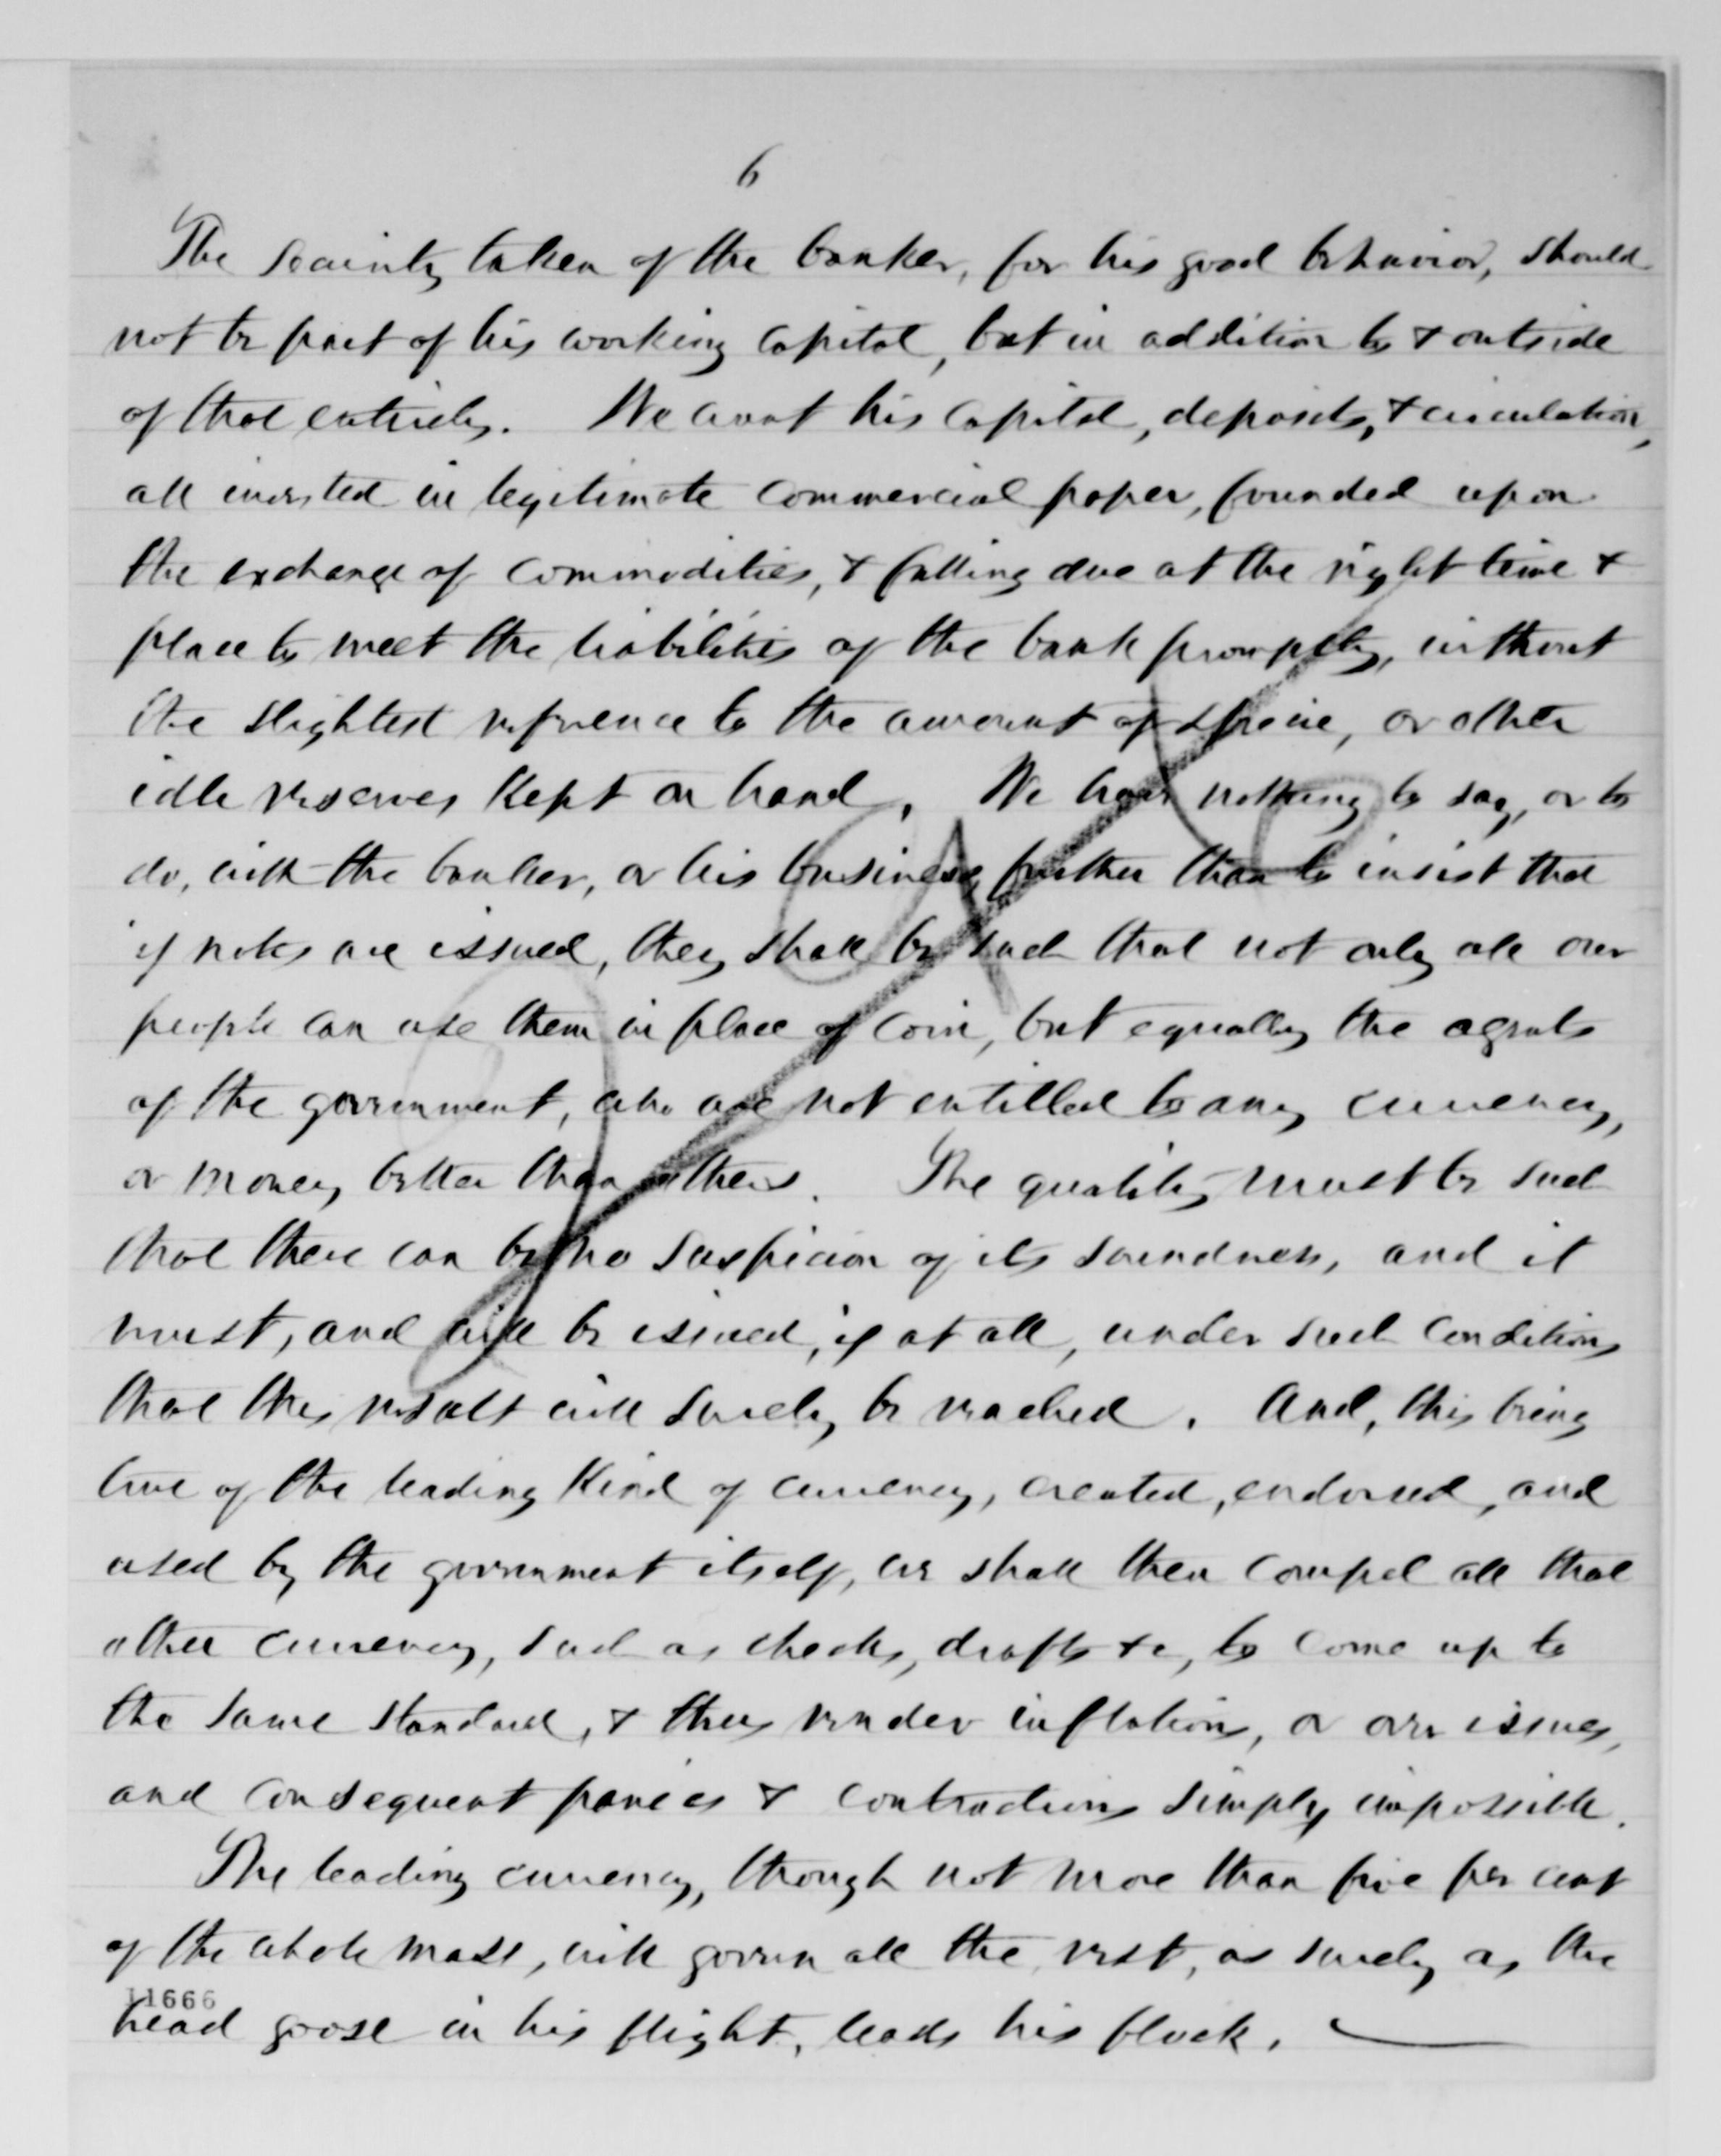 6
The Security taken of the banker, for his good behavior, should
not be part of his working capital, but in addition to & outside
of that entirely. We want his capital, deposits, & circulation,
all invested in legitimate commercial paper, founded upon
the exchange of commodities, & falling due at the right time &
place to meet the liabilities of the bank promptly, without
the slightest reference to the amount of specie, or other
idle reserves kept on hand. We have nothing to say, or to
do, with the banker, or his business, further than to insist that
if notes are issued, they shall be such that not only all our
people can use them in place of coin, but equally the agents
of the government, who are not entitled to any currency,
or money better than others. The quality must be such
that there can be no suspicion of its soundness, and it
must, and will be issued, if at all, under such conditions
that this result will surely be reached. And, this being
true of the leading kind of currency, created, endorsed, and
used by the government itself, we shall then compel all that
other currency, such as checks, drafts &c, to come up to
the same standard, & thus render inflations, or over issues,
and consequent panics & contractions simply impossible.
The leading currency, though not more than five per cent
of the whole mass, will govern all the rest, as surely as the
11666
head goose in his flight, leads his flock.